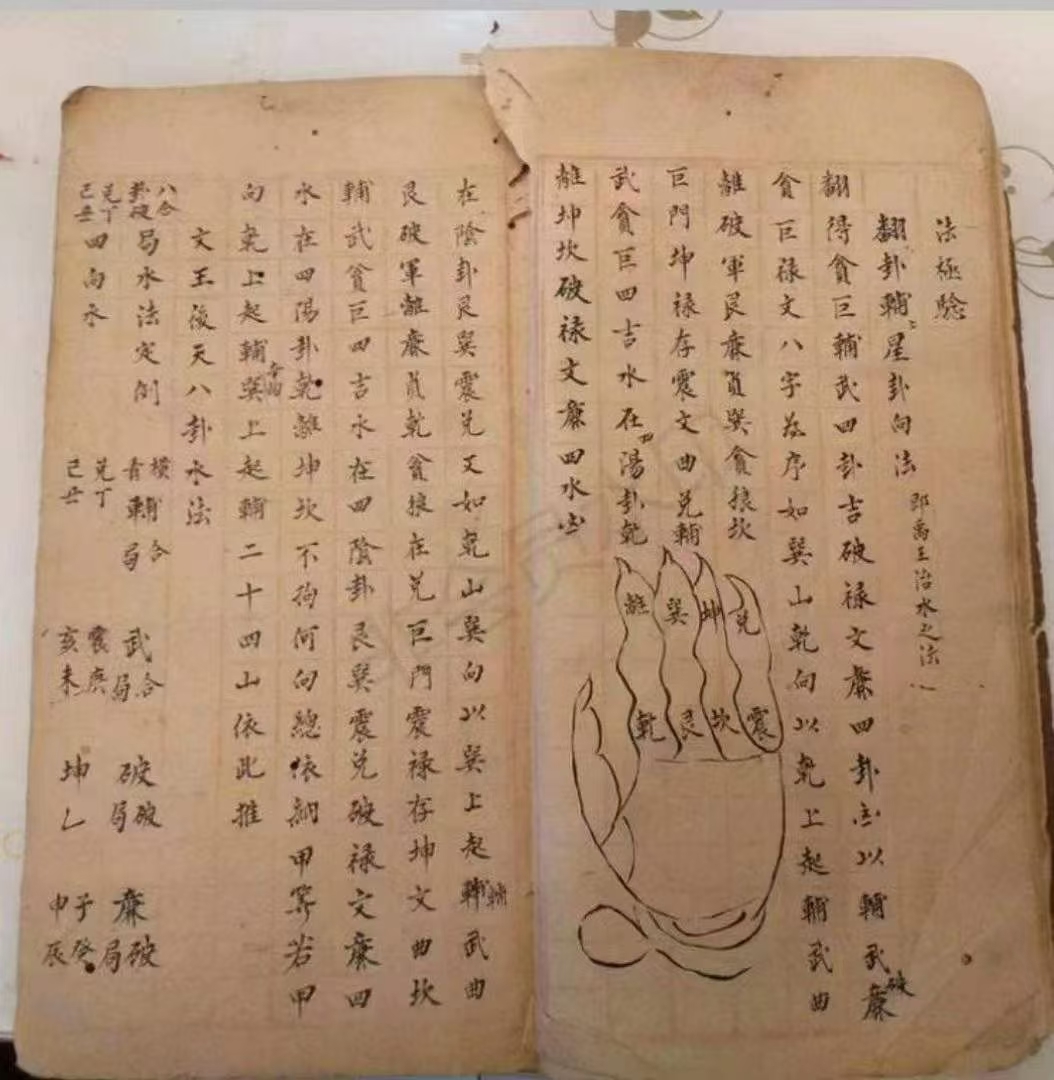 法極驗
翻卦輔星卦向法 即禹王治水之法
翻得貪巨輔武四卦吉破祿文廉四卦凶以輔武破廉
貪巨祿文八字為序如巽山乾向以乾上起輔武曲
離破軍艮廉貞巽貪狼坎
巨門坤祿存震文曲兌輔
武貪巨四吉水在四陽卦乾
離坤坎破祿文廉四水凶
離
巽
坤
兌
乾
艮
坎
震
在陰卦艮巽震兌又如乾山巽向以巽上起輔武曲
艮破軍離廉貞乾貪狼在兌巨門震祿存坤文曲坎
輔武貪巨四吉水在四陰卦艮巽震兌破祿文廉四
水在四陽卦乾離坤坎不拘何向總依納甲筭若甲
向乾上起輔巽上起輔二十四山依此推
文王後天八卦水法
八合卦破局水法定例 橫合青輔局 武合局 破破局 廉破局
兌丁己丑四向水 兌丁己丑 震庚亥未 坤乙 子癸申辰